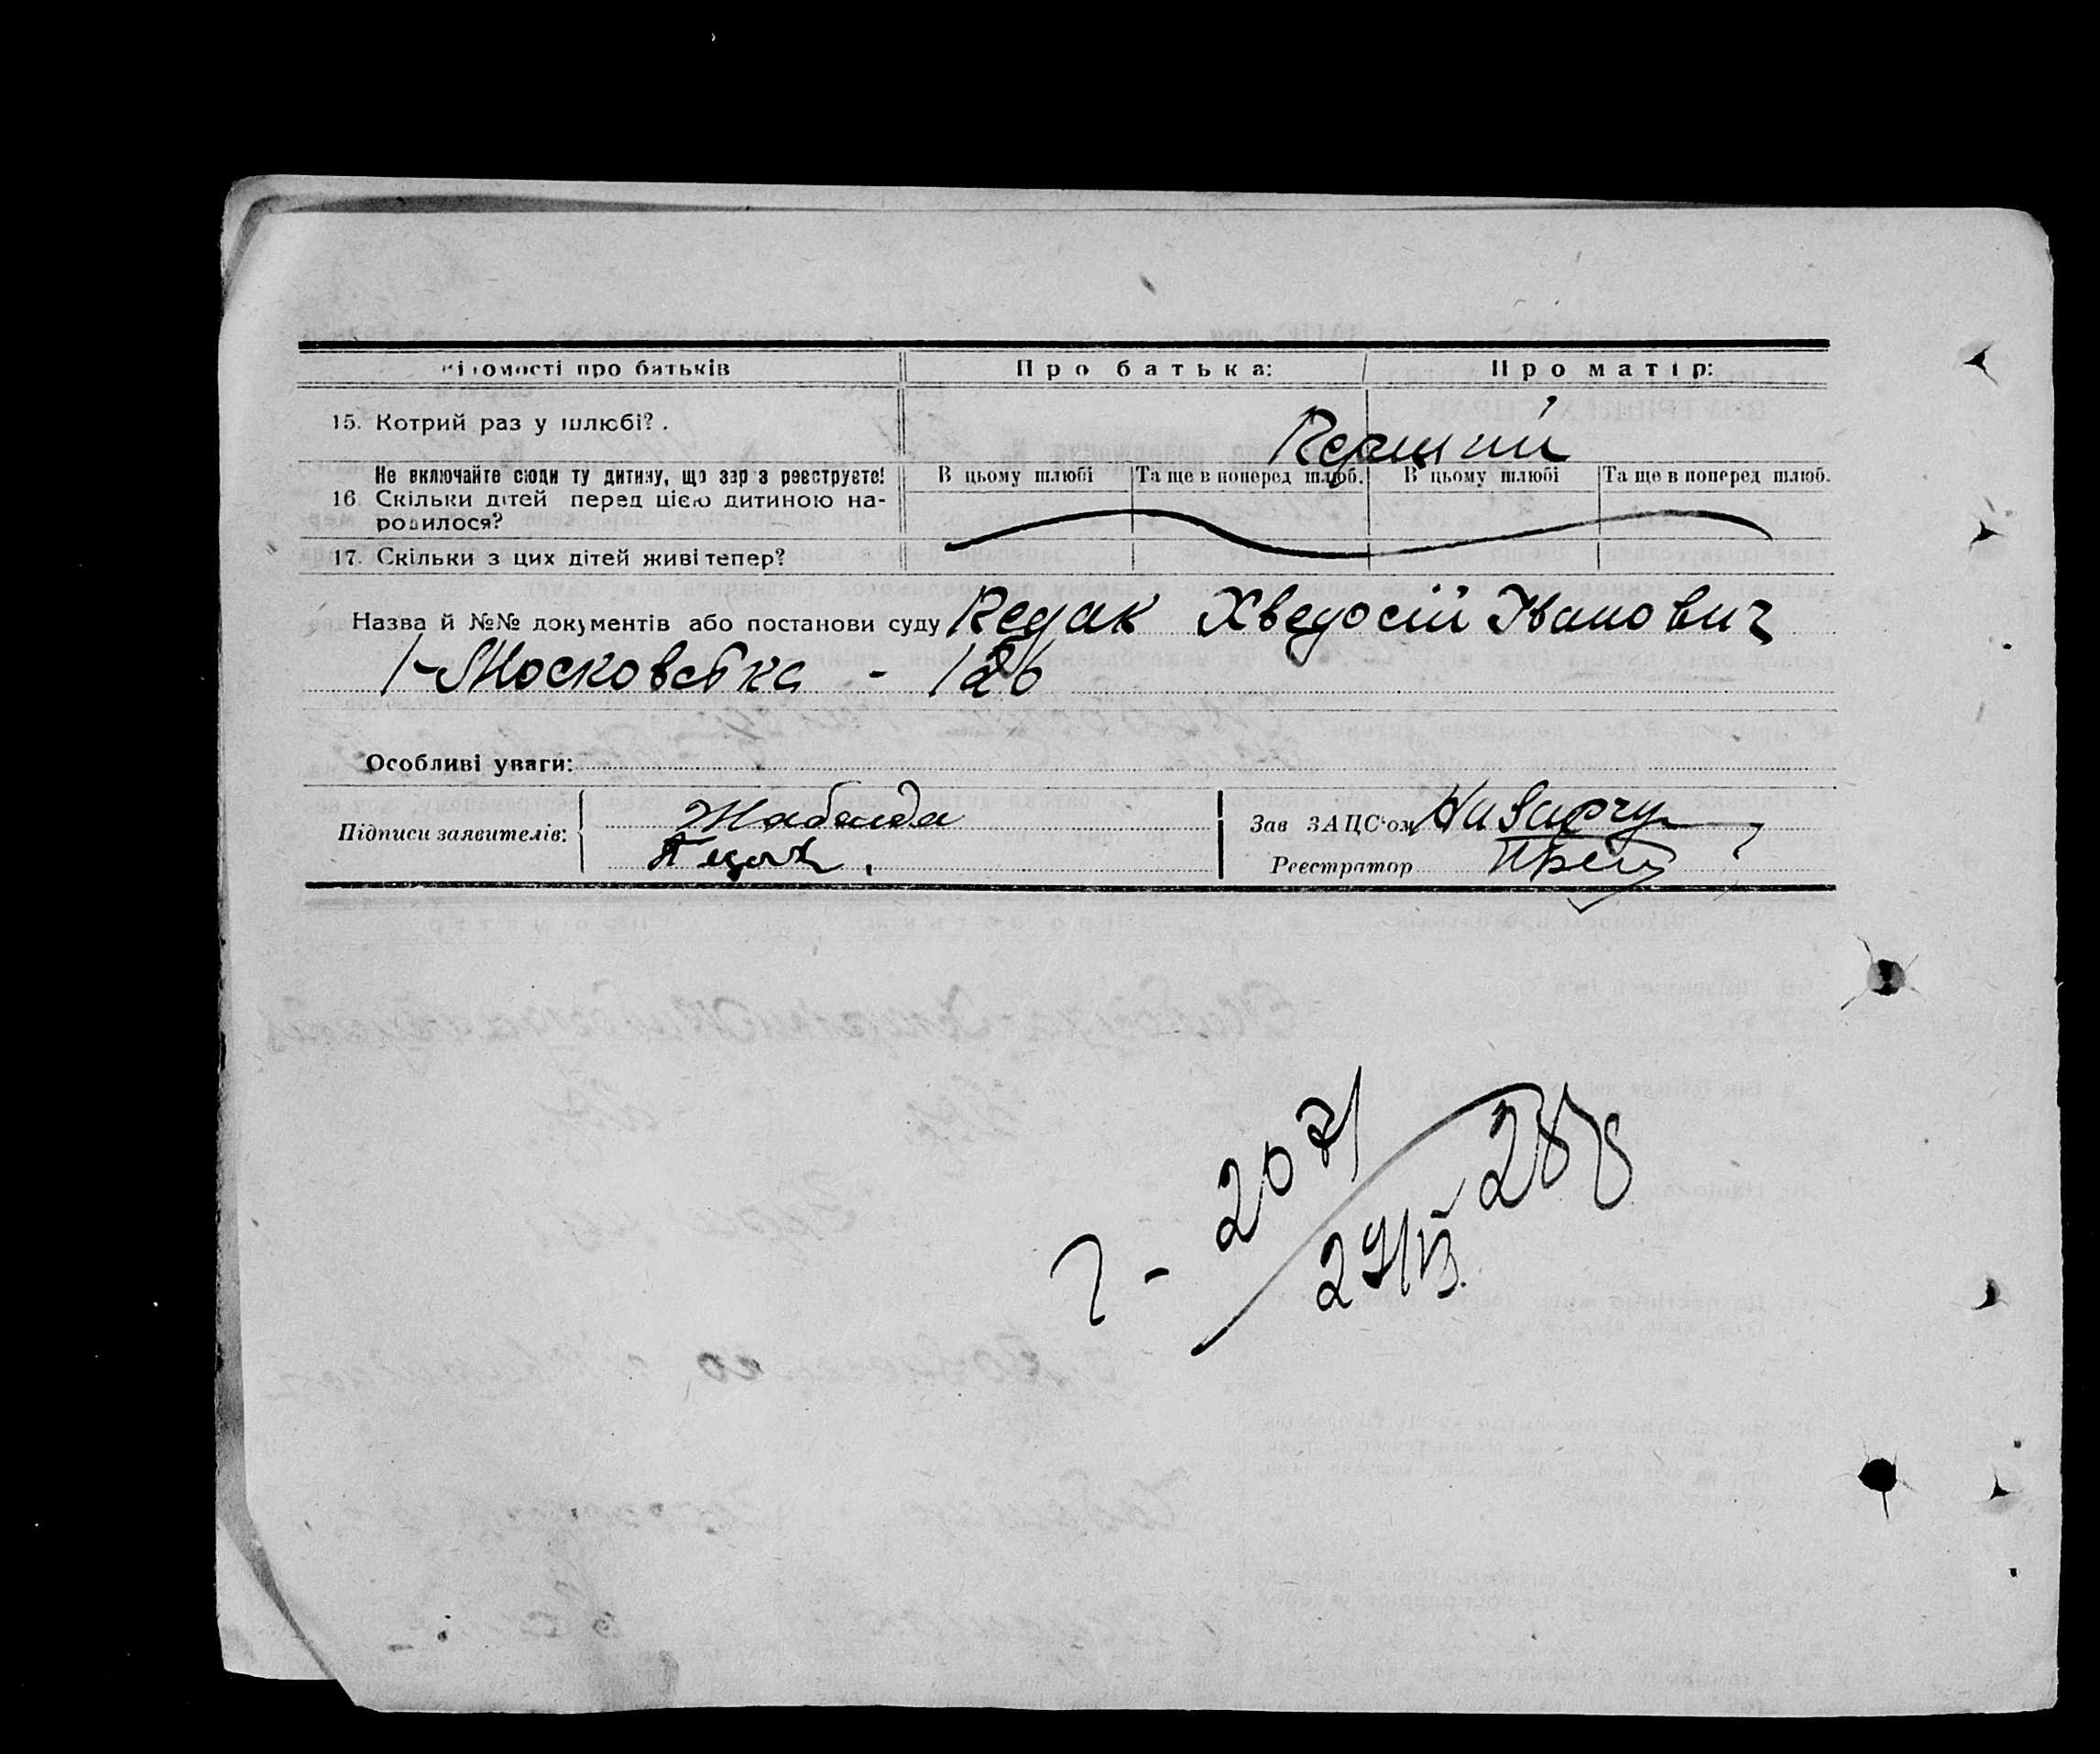 Відомості про батьків Про батька: Про матір:
15. Котрий раз у шлюбі? . Перший
Не включайте сюди ту дитину, що зараз реєструєте!
В цьому шлюбі Та ще в поперед шлюб. В цьому шлюбі Та ще в поперед шлюб.
16. Скільки дітей перед цією дитиною на-
родилося?
17. Скільки з цих дітей живі тепер?
Назва й №№ документів або постанови суду Педак Хведосій Іванович
1-Московська - 126
Особливі уваги:
Підписи заявителів: Жабоїда
Педак.
Зав ЗАЦС'ом Назарчу
Реєстратор
2071
288
29/VI.